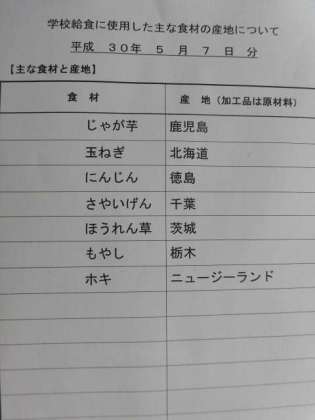 学校給食に使用した主な食材の産地について
平成　３０年　５　月　７　日　分
【主な食材と産地】
食　材　産　地（加工品は原材料）
じゃが芋　鹿児島
玉ねぎ　北海道
にんじん　徳島
さやいげん　千葉
ほうれん草　茨城
もやし　栃木
ホキ　ニュージーランド